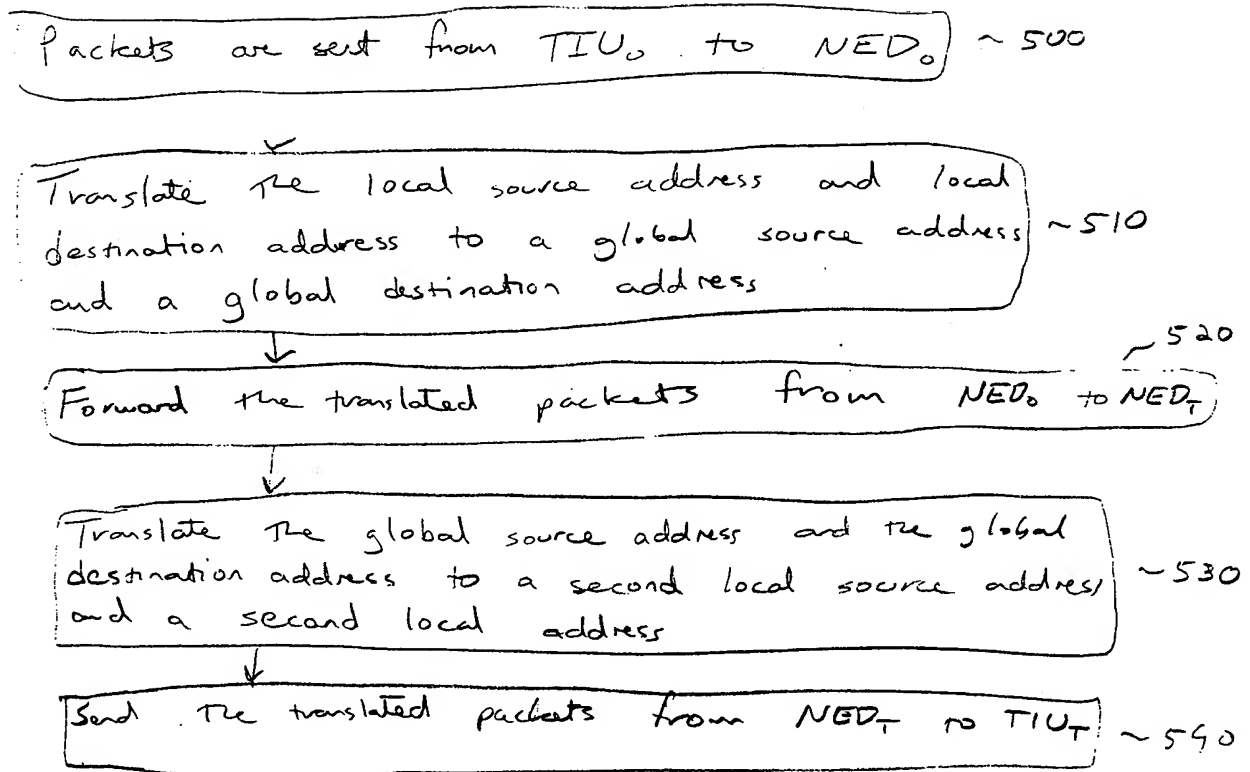 Packets are sent from TIU₀ to NED₀ ~ 500
Translate the local source address and local
destination address to a global source address ~ 510
and a global destination address
520
Forward the translated packets from NED₀ to NED_T
Translate the global source address and the global
destination address to a second local source address ~ 530
and a second local address
Send the translated packets from NED_T to TIU_T ~ 540